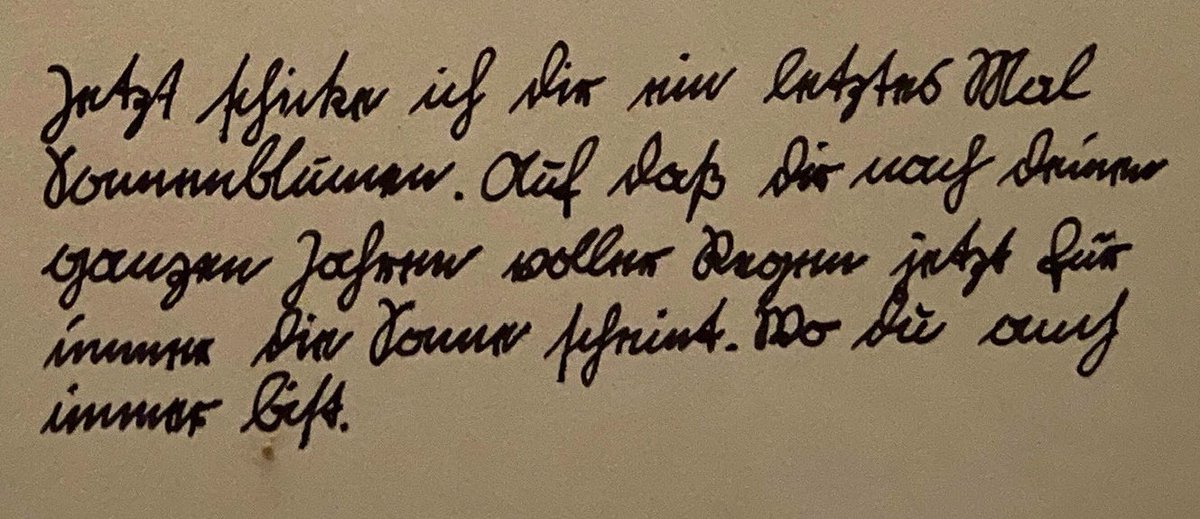 Jetzt schicke ich dir ein letztes Mal
Sonnenblumen. Auf daß dir nach deinen
ganzen Jahren voller Regen jetzt für
immer die Sonne scheint. Wo du auch
immer bist.